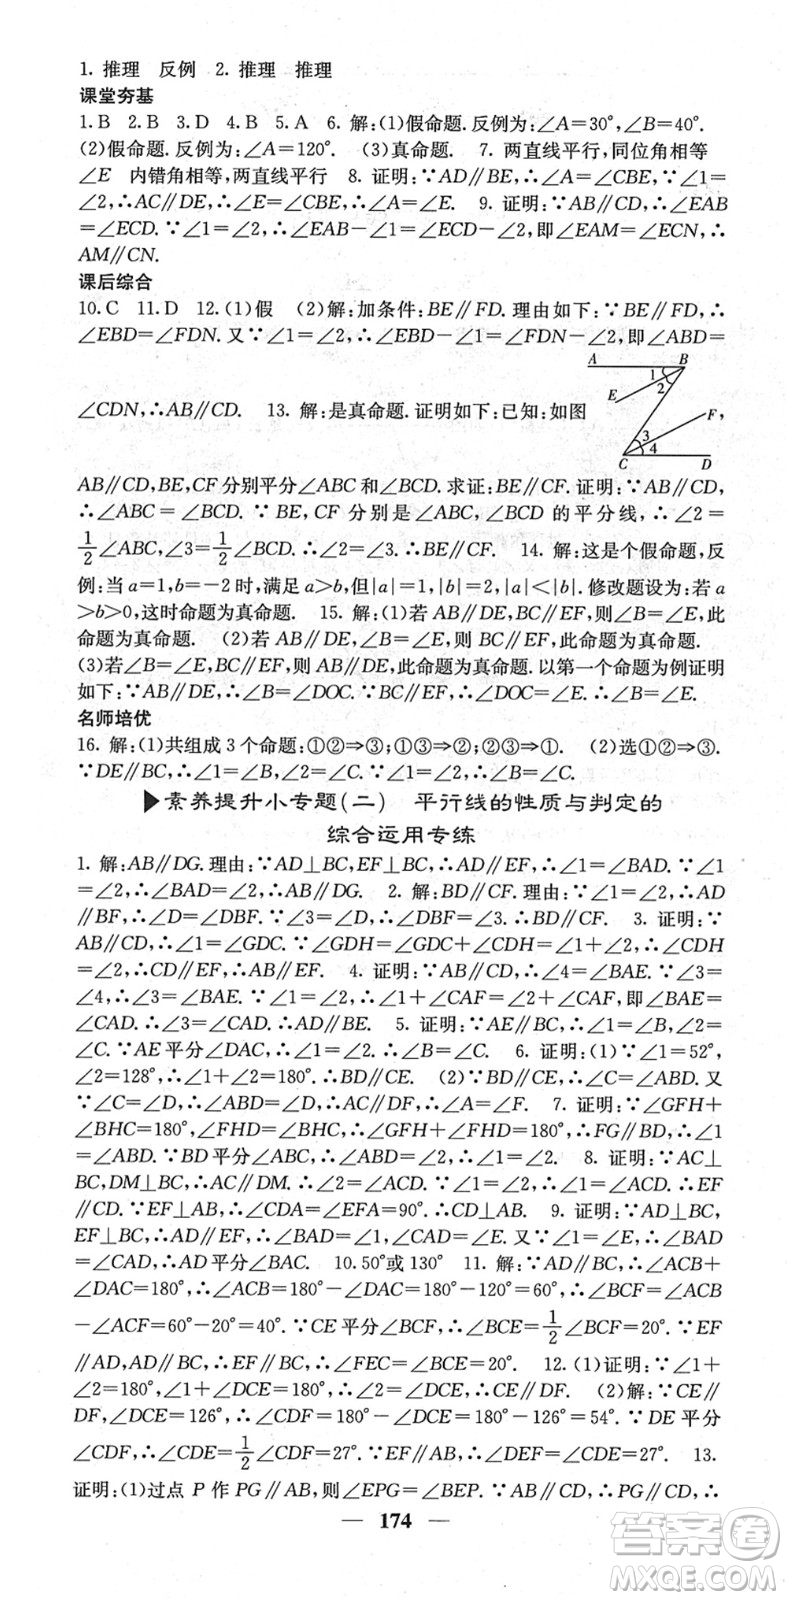 1. 推理　反例　2. 推理　推理
课堂夯基
1. B　2. B　3. D　4. B　5. A　6. 解:(1)假命题. 反例为:∠A=30°,∠B=40°.
(2)假命题. 反例为:∠A=120°.　(3)真命题.　7. 两直线平行,同位角相等
∠E　内错角相等,两直线平行　8. 证明:∵AD∥BE,∴∠A=∠CBE,∵∠1=
∠2,∴AC∥DE,∴∠E=∠CBE,∴∠A=∠E.　9. 证明:∵AB∥CD,∴∠EAB
=∠ECD. ∵∠1=∠2,∴∠EAB-∠1=∠ECD-∠2,即∠EAM=∠ECN,∴
AM∥CN.
课后综合
10. C　11. D　12. (1)假　(2)解:加条件:BE∥FD. 理由如下:∵BE∥FD,∴
∠EBD=∠FDN. 又∵∠1=∠2,∴∠EBD-∠1=∠FDN-∠2,即∠ABD=
A B 1 2 E F 3 4 C D
∠CDN,∴AB∥CD.　13. 解:是真命题. 证明如下:已知:如图　,
AB∥CD,BE,CF分别平分∠ABC和∠BCD. 求证:BE∥CF. 证明:∵AB∥CD,
∴∠ABC=∠BCD. ∵BE,CF分别是∠ABC,∠BCD的平分线,∴∠2=
1/2∠ABC,∠3=1/2∠BCD. ∴∠2=∠3. ∴BE∥CF.　14. 解:这是个假命题,反
例:当a=1,b=-2时,满足a>b,但|a|=1,|b|=2,|a|<|b|. 修改题设为:若a
>b>0,这时命题为真命题.　15. 解:(1)若AB∥DE,BC∥EF,则∠B=∠E,此
命题为真命题.　(2)若AB∥DE,∠B=∠E,则BC∥EF,此命题为真命题.
(3)若∠B=∠E,BC∥EF,则AB∥DE,此命题为真命题. 以第一个命题为例证明
如下:∵AB∥DE,∴∠B=∠DOC. ∵BC∥EF,∴∠DOC=∠E,∴∠B=∠E.
名师培优
16. 解:(1)共组成3个命题:①②⇒③;①③⇒②;②③⇒①.　(2)选①②⇒③.
∵DE∥BC,∴∠1=∠B,∠2=∠C. ∵∠1=∠2,∴∠B=∠C.
▶素养提升小专题(二)　平行线的性质与判定的
综合运用专练
1. 解:AB∥DG. 理由:∵AD⊥BC,EF⊥BC,∴AD∥EF,∴∠1=∠BAD. ∵∠1
=∠2,∴∠BAD=∠2,∴AB∥DG.　2. 解:BD∥CF. 理由:∵∠1=∠2,∴AD
∥BF,∴∠D=∠DBF. ∵∠3=∠D,∴∠DBF=∠3. ∴BD∥CF.　3. 证明:∵
AB∥CD,∴∠1=∠GDC. ∵∠GDH=∠GDC+∠CDH=∠1+∠2,∴∠CDH
=∠2,∴CD∥EF,∴AB∥EF.　4. 证明:∵AB∥CD,∴∠4=∠BAE. ∵∠3=
∠4,∴∠3=∠BAE. ∵∠1=∠2,∴∠1+∠CAF=∠2+∠CAF,即∠BAE=
∠CAD. ∴∠3=∠CAD. ∴AD∥BE.　5. 证明:∵AE∥BC,∴∠1=∠B,∠2=
∠C. ∵AE平分∠DAC,∴∠1=∠2. ∴∠B=∠C.　6. 证明:(1)∵∠1=52°,
∠2=128°,∴∠1+∠2=180°. ∴BD∥CE.　(2)∵BD∥CE,∴∠C=∠ABD. 又
∵∠C=∠D,∴∠ABD=∠D,∴AC∥DF,∴∠A=∠F.　7. 证明:∵∠GFH+
∠BHC=180°,∠FHD=∠BHC,∴∠GFH+∠FHD=180°,∴FG∥BD,∴∠1
=∠ABD. ∵BD平分∠ABC,∴∠2=∠ABD,∴∠1=∠2.　8. 证明:∵AC⊥
BC,DM⊥BC,∴AC∥DM. ∴∠2=∠ACD. ∵∠1=∠2,∴∠1=∠ACD. ∴EF
∥CD. ∵EF⊥AB,∴∠CDA=∠EFA=90°. ∴CD⊥AB.　9. 证明:∵AD⊥BC,
EF⊥BC,∴AD∥EF,∴∠BAD=∠1,∠CAD=∠E. 又∵∠1=∠E,∴∠BAD=
∠CAD,∴AD平分∠BAC.　10. 50°或130°　11. 解:∵AD∥BC,∴∠ACB+
∠DAC=180°,∴∠ACB=180°-∠DAC=180°-120°=60°,∴∠BCF=∠ACB
-∠ACF=60°-20°=40°. ∵CE平分∠BCF,∴∠BCE=1/2∠BCF=20°. ∵EF
∥AD,AD∥BC,∴EF∥BC,∴∠FEC=∠BCE=20°.　12. (1)证明:∵∠1+
∠2=180°,∠1+∠DCE=180°,∴∠2=∠DCE. ∴CE∥DF.　(2)解:∵CE∥
DF,∠DCE=126°,∴∠CDF=180°-∠DCE=180°-126°=54°. ∵DE平分
∠CDF,∴∠CDE=1/2∠CDF=27°. ∵EF∥AB,∴∠DEF=∠CDE=27°.　13.
证明:(1)过点P作PG∥AB,则∠EPG=∠BEP. ∵AB∥CD,∴PG∥CD,∴
— 174 —
答案圈
MXQE.COM